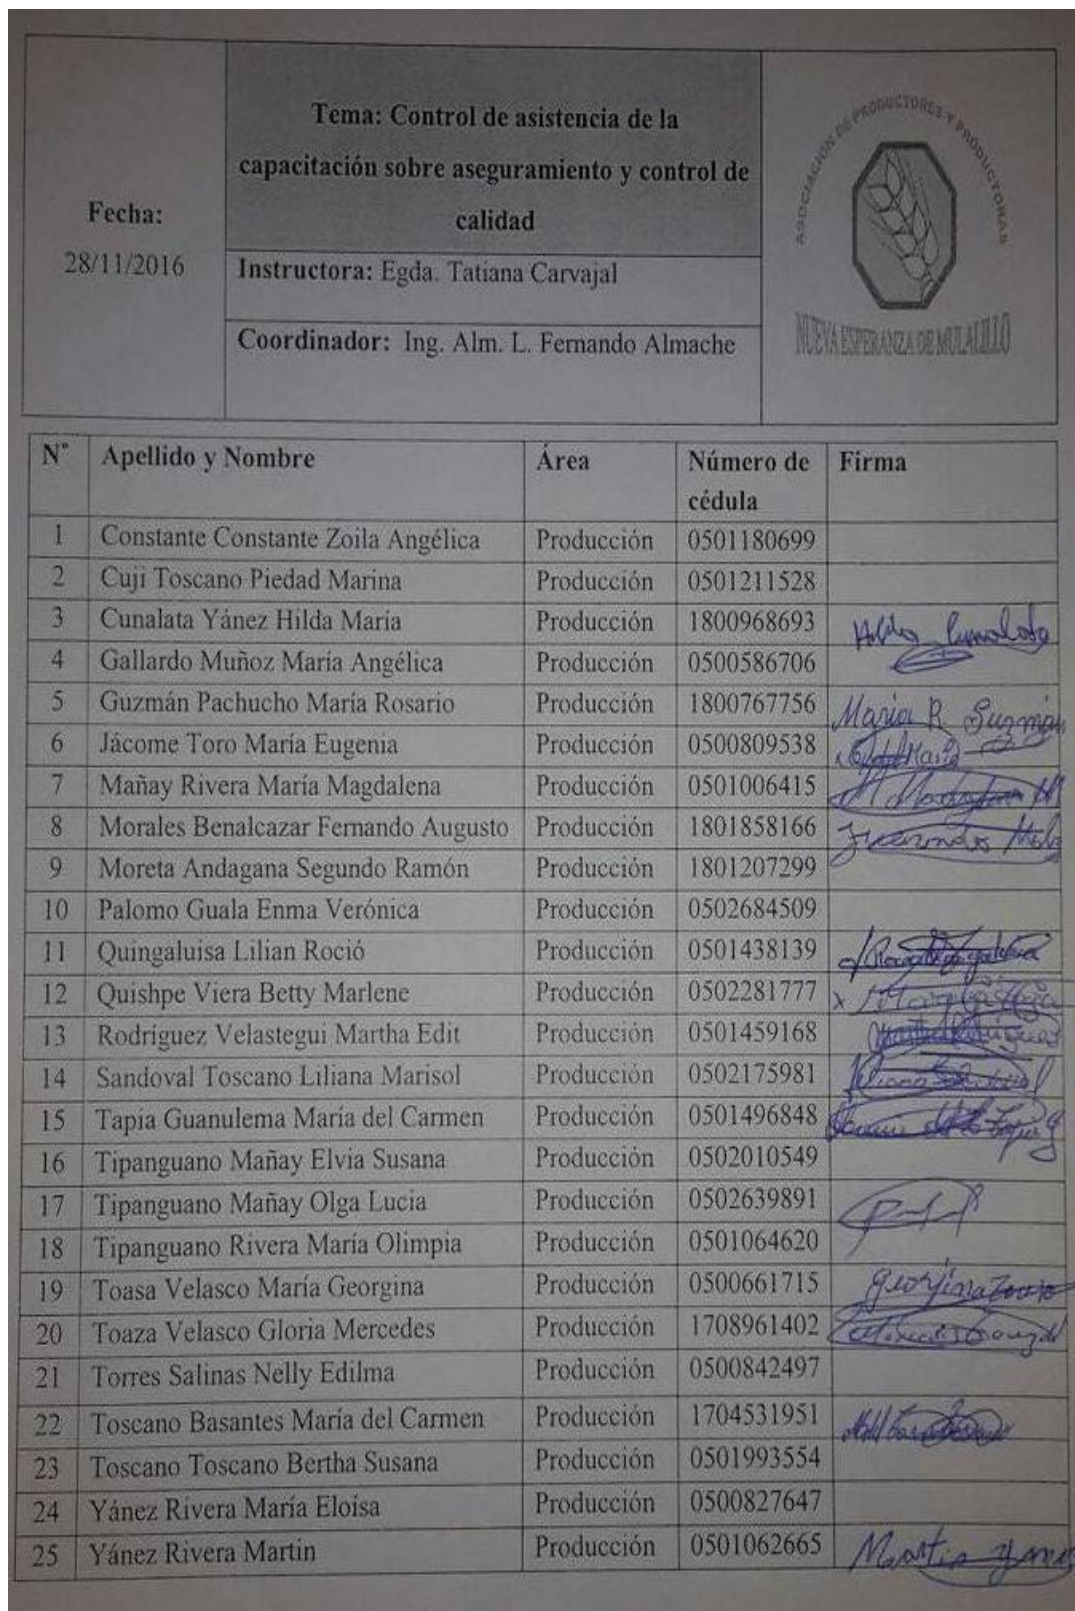 Fecha:
28/11/2016
Tema: Control de asistencia de la
capacitación sobre aseguramiento y control de
calidad
Instructora: Egda. Tatiana Carvajal
Coordinador: Ing. Alm. L. Fernando Almache
ASOCIACION DE PRODUCTORES Y PRODUCTORAS
NUEVA ESPERANZA DE MULALILLO
N° Apellido y Nombre Área Número de cédula Firma
1 Constante Constante Zoila Angélica Producción 0501180699
2 Cuji Toscano Piedad Marina Producción 0501211528
3 Cunalata Yánez Hilda María Producción 1800968693 Hilda Cunalata
4 Gallardo Muñoz María Angélica Producción 0500586706
5 Guzmán Pachucho María Rosario Producción 1800767756 Maria R Guzmán
6 Jácome Toro María Eugenia Producción 0500809538
7 Mañay Rivera María Magdalena Producción 0501006415
8 Morales Benalcazar Fernando Augusto Producción 1801858166
9 Moreta Andagana Segundo Ramón Producción 1801207299
10 Palomo Guala Enma Verónica Producción 0502684509
11 Quingaluisa Lilian Roció Producción 0501438139
12 Quishpe Viera Betty Marlene Producción 0502281777
13 Rodríguez Velastegui Martha Edit Producción 0501459168
14 Sandoval Toscano Liliana Marisol Producción 0502175981
15 Tapia Guanulema María del Carmen Producción 0501496848
16 Tipanguano Mañay Elvia Susana Producción 0502010549
17 Tipanguano Mañay Olga Lucia Producción 0502639891
18 Tipanguano Rivera María Olimpia Producción 0501064620
19 Toasa Velasco María Georgina Producción 0500661715 Georjina
20 Toaza Velasco Gloria Mercedes Producción 1708961402
21 Torres Salinas Nelly Edilma Producción 0500842497
22 Toscano Basantes María del Carmen Producción 1704531951
23 Toscano Toscano Bertha Susana Producción 0501993554
24 Yánez Rivera María Eloísa Producción 0500827647
25 Yánez Rivera Martin Producción 0501062665 Martin Yanez